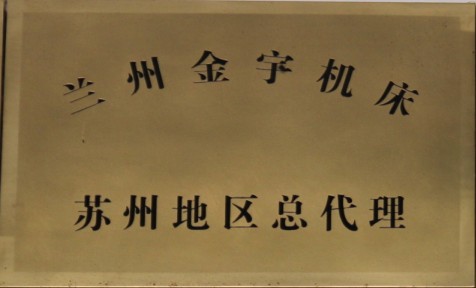 兰州金宇机床
苏州地区总代理